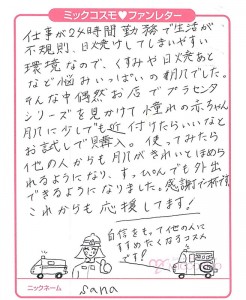 ミックコスモ♥ファンレター
仕事が24時間勤務で生活が
不規則、日焼けしてしまいやすい
環境なので、くすみや日焼あと
など悩みいっぱいの肌でした。
そんな中偶然お店でプラセンタ
シリーズを見かけて憧れの赤ちゃん
肌に少しでも近付けたらいいなと
お試しで購入。使ってみたら
他の人からも肌がきれいとほめら
れるようになり、すっぴんでも外出
できるようになりました。感謝です。
これからも応援してます!
自信をもって他の人に
すすめたくなるコスメ
です!
ニックネーム
sana